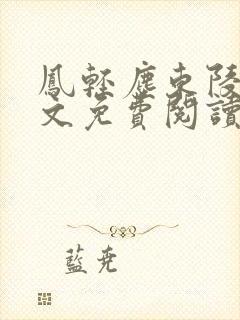 鳳輕塵東陵
文免費閱讀
藍堯